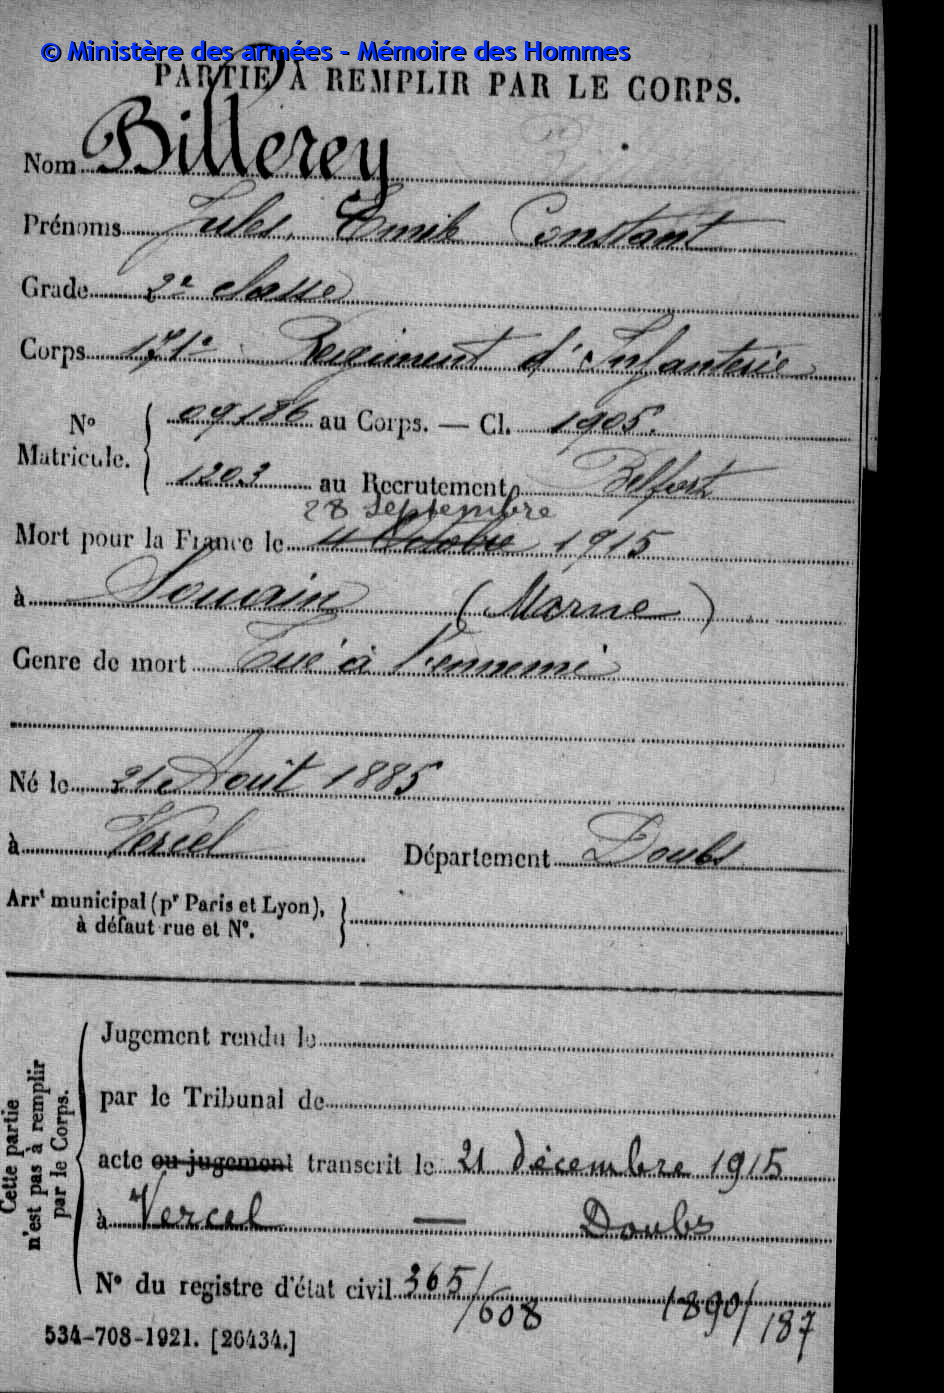 © Ministère des armées - Mémoire des Hommes
PARTIE À REMPLIR PAR LE CORPS.
Nom Billerey
Prénoms Jules, Emile Constant
Grade 2e classe
Corps 171e Regiment d'Infanterie
N° Matricule. 09186 au Corps. — Cl. 1905.
1203 au Recrutement Belfort
28 septembre
Mort pour la France le 4 Octobre 1915
à Souain (Marne)
Genre de mort Tué à l'ennemi
Né le 21 Août 1885
à Vercel Département Doubs
Arrt municipal (pr Paris et Lyon),
à défaut rue et N°.
Cette partie
n'est pas à remplir
par le Corps.
Jugement rendu le
par le Tribunal de
acte ou jugement transcrit le 21 décembre 1915
à Vercel — Doubs
N° du registre d'état civil 365/608 1890/187
534-708-1921. [26434.]